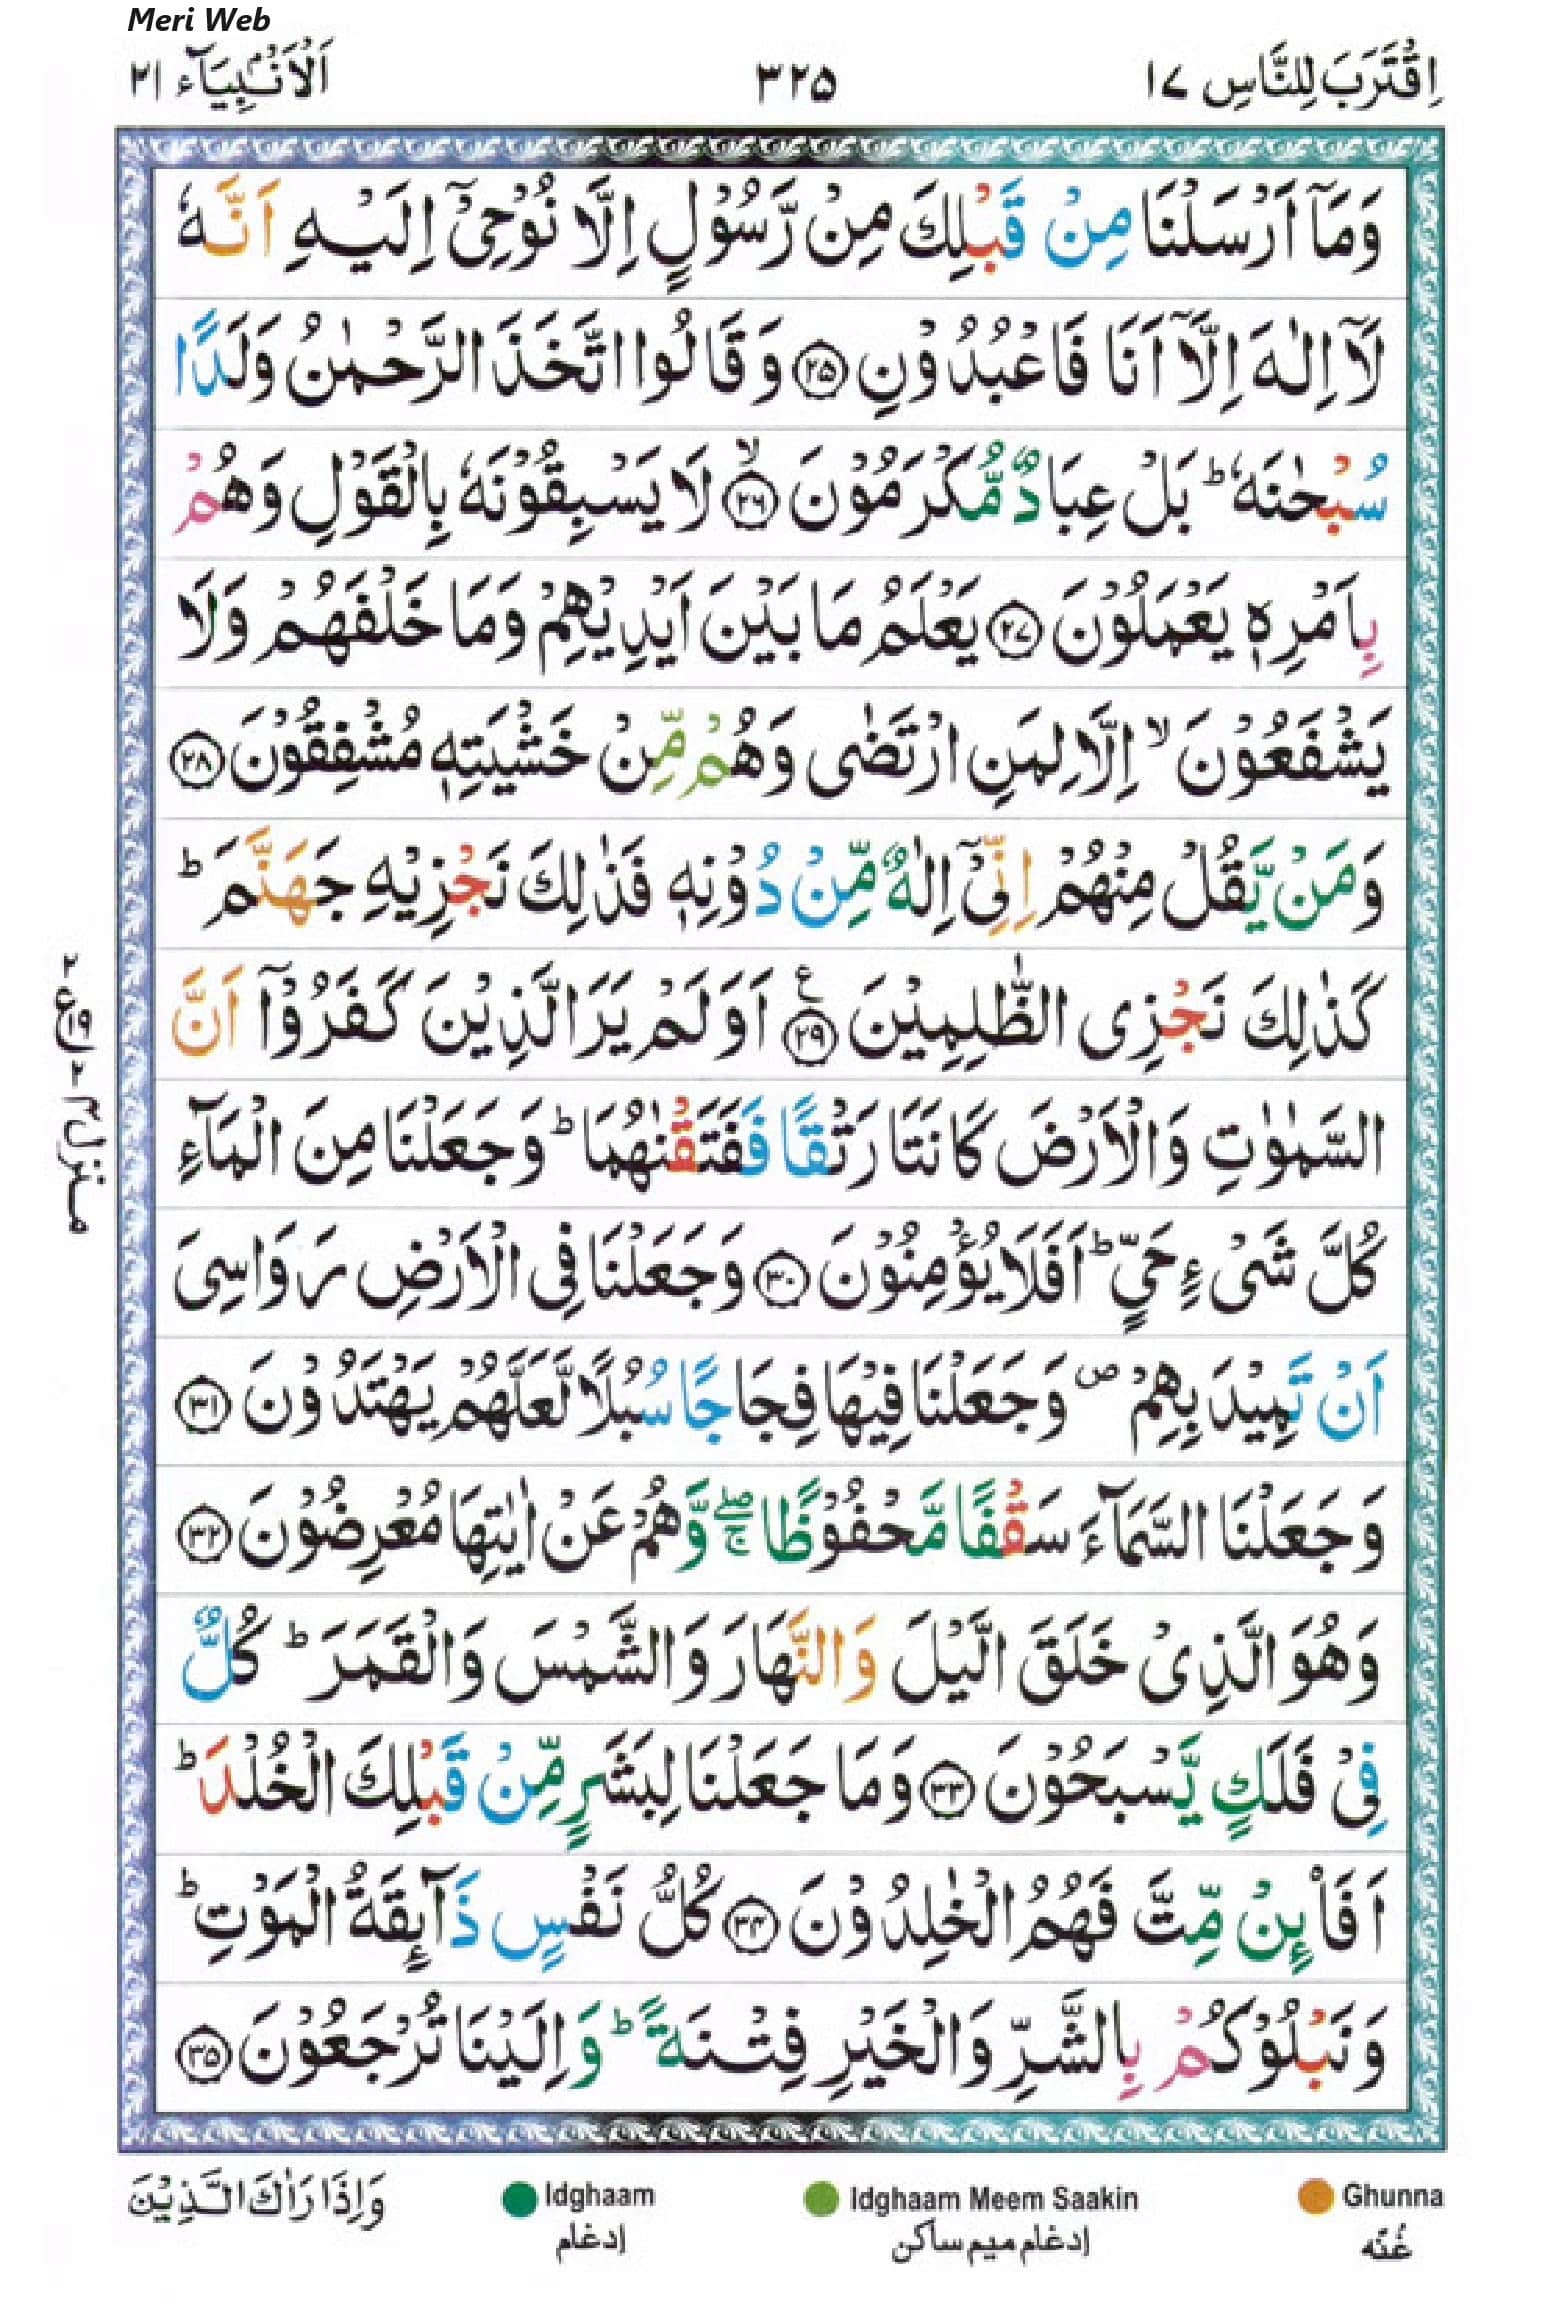 Meri Web
اِقْتَرَبَ لِلنَّاسِ ١٧
٣٢٥
اَلْاَنْۢبِيَآء ٢١
وَمَآ اَرْسَلْنَا مِنْ قَبْلِكَ مِنْ رَّسُوْلٍ اِلَّا نُوْحِىْٓ اِلَيْهِ اَنَّهٗ
لَآ اِلٰهَ اِلَّآ اَنَا فَاعْبُدُوْنِ ﴿٢٥﴾ وَ قَالُوا اتَّخَذَ الرَّحْمٰنُ وَلَدًا
سُبْحٰنَهٗ ؕ بَلْ عِبَادٌ مُّكْرَمُوْنَ ۙ﴿٢٦﴾ لَا يَسْبِقُوْنَهٗ بِالْقَوْلِ وَهُمْ
بِاَمْرِهٖ يَعْمَلُوْنَ ﴿٢٧﴾ يَعْلَمُ مَا بَيْنَ اَيْدِيْهِمْ وَمَا خَلْفَهُمْ وَلَا
يَشْفَعُوْنَ ۙ اِلَّا لِمَنِ ارْتَضٰى وَهُمْ مِّنْ خَشْيَتِهٖ مُشْفِقُوْنَ ﴿٢٨﴾
وَمَنْ يَّقُلْ مِنْهُمْ اِنِّىْٓ اِلٰهٌ مِّنْ دُوْنِهٖ فَذٰلِكَ نَجْزِيْهِ جَهَنَّمَ ؕ
كَذٰلِكَ نَجْزِى الظّٰلِمِيْنَ ﴿٢٩﴾ ع اَوَلَمْ يَرَ الَّذِيْنَ كَفَرُوْٓا اَنَّ
السَّمٰوٰتِ وَالْاَرْضَ كَانَتَا رَتْقًا فَفَتَقْنٰهُمَا ؕ وَجَعَلْنَا مِنَ الْمَآءِ
كُلَّ شَىْءٍ حَىٍّ ؕ اَفَلَا يُؤْمِنُوْنَ ﴿٣٠﴾ وَجَعَلْنَا فِى الْاَرْضِ رَوَاسِىَ
اَنْ تَمِيْدَ بِهِمْ ص وَجَعَلْنَا فِيْهَا فِجَاجًا سُبُلًا لَّعَلَّهُمْ يَهْتَدُوْنَ ﴿٣١﴾
وَجَعَلْنَا السَّمَآءَ سَقْفًا مَّحْفُوْظًا ۖۚ وَّهُمْ عَنْ اٰيٰتِهَا مُعْرِضُوْنَ ﴿٣٢﴾
وَهُوَ الَّذِىْ خَلَقَ الَّيْلَ وَالنَّهَارَ وَالشَّمْسَ وَالْقَمَرَ ؕ كُلٌّ
فِىْ فَلَكٍ يَّسْبَحُوْنَ ﴿٣٣﴾ وَمَا جَعَلْنَا لِبَشَرٍ مِّنْ قَبْلِكَ الْخُلْدَ ؕ
اَفَا۟ئِنْ مِّتَّ فَهُمُ الْخٰلِدُوْنَ ﴿٣٤﴾ كُلُّ نَفْسٍ ذَآئِقَةُ الْمَوْتِ ؕ
وَنَبْلُوْكُمْ بِالشَّرِّ وَالْخَيْرِ فِتْنَةً ؕ وَاِلَيْنَا تُرْجَعُوْنَ ﴿٣٥﴾
منزل ٤
Ghunna
غُنّه
Idghaam Meem Saakin
إدغام ميم ساكن
Idghaam
إدغام
وَاِذَا رَاٰكَ الَّذِيْنَ